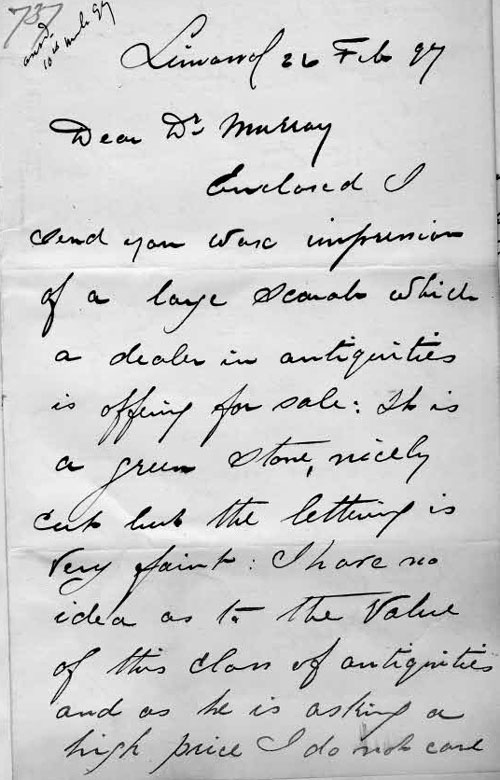 737
ansd.
10th Mch 97
Limassol 26 Feb 97
Dear Dr. Murray
Enclosed I
send you wax impression
of a large Scarab which
a dealer in antiquities
is offering for sale: It is
a green Stone, nicely
cut but the lettering is
very faint: I have no
idea as to the Value
of this class of antiquities
and as he is asking a
high price I do not care